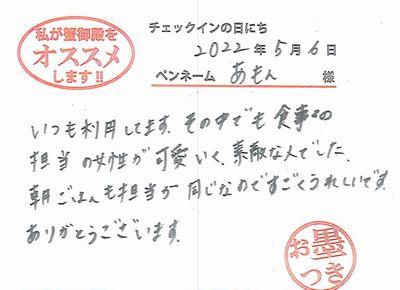 私が蟹御殿を
オススメ
します!!
チェックインの日にち
2022年5月6日
ペンネーム あもん 様
いつも利用してます。その中でも食事の
担当の女性が可愛いく、素敵な人でした。
朝ごはんも担当が同じなのですごくうれしいです。
ありがとうございます。
お墨
つき